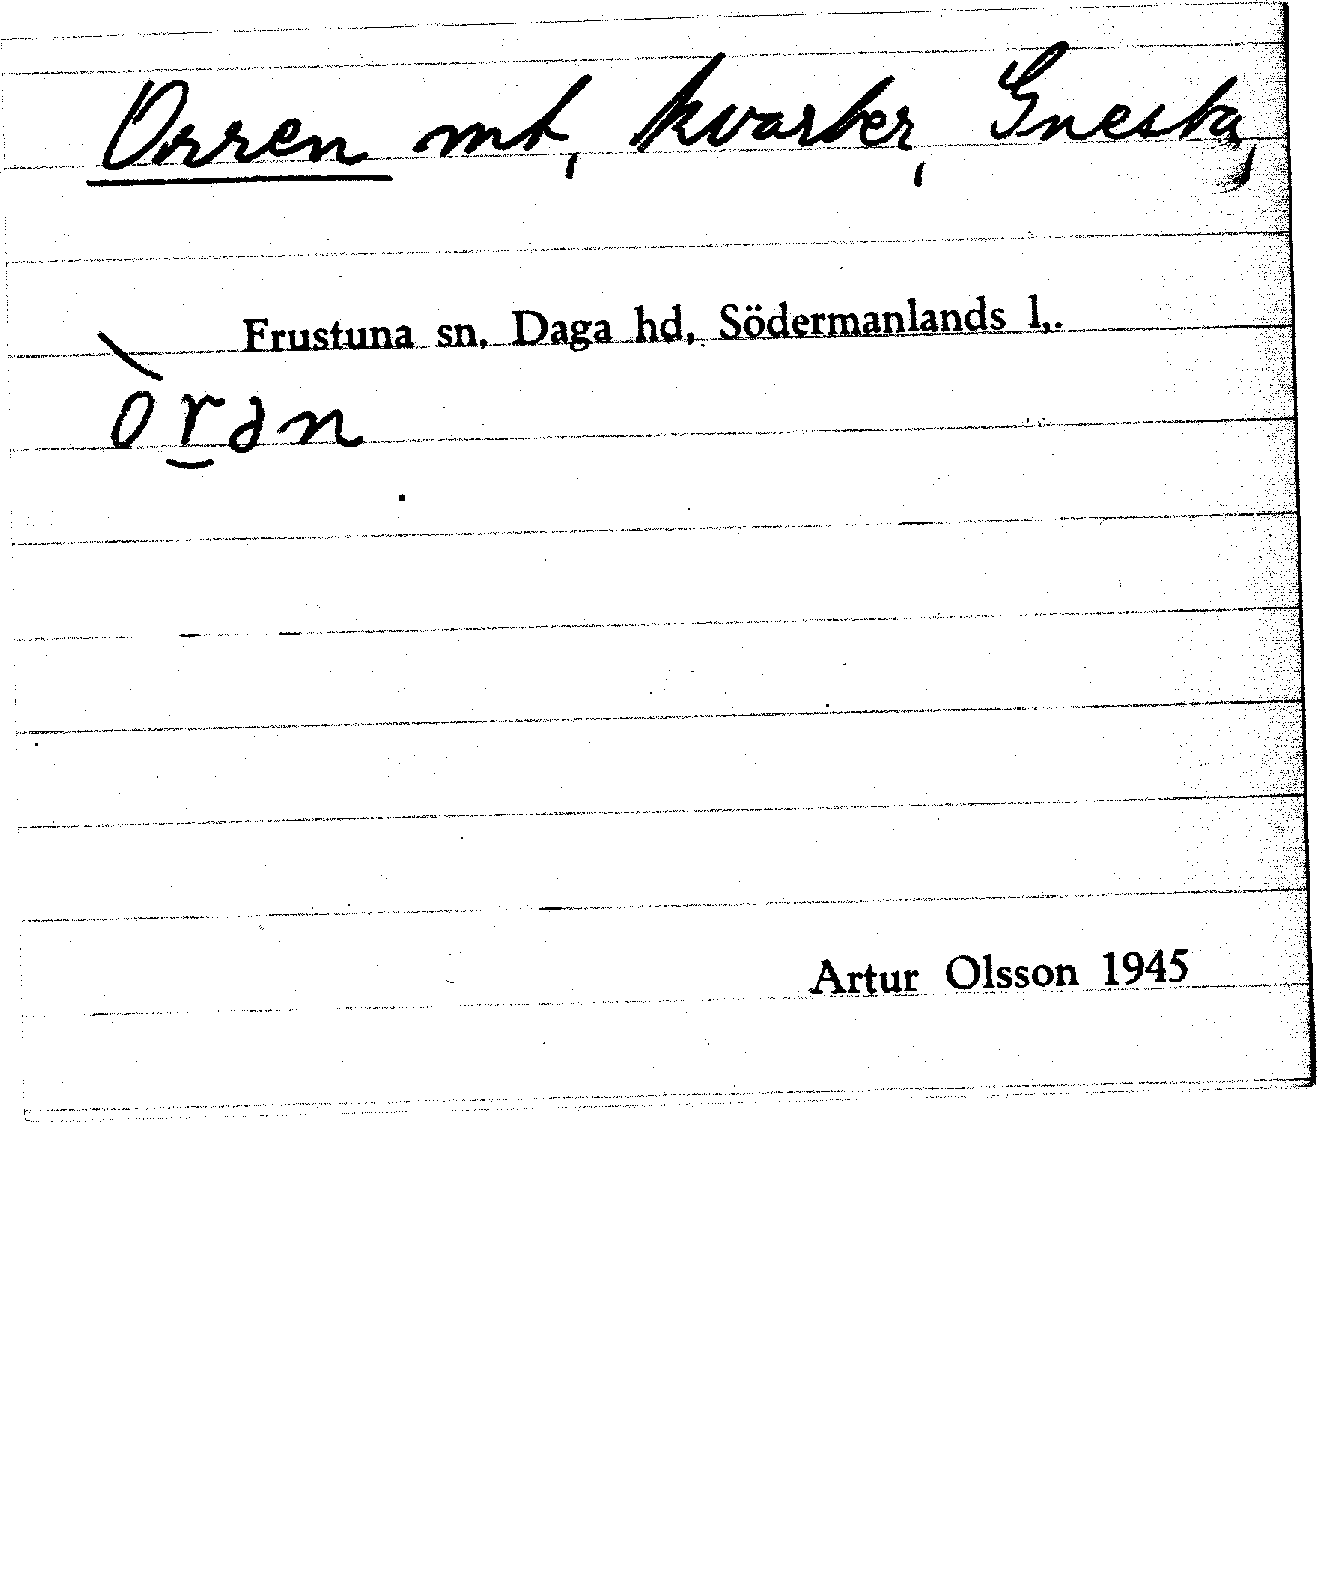 Orren mt, kvarter, Gnesta,
Frustuna sn. Daga hd, Södermanlands l,.
òr̲ən
Artur Olsson 1945